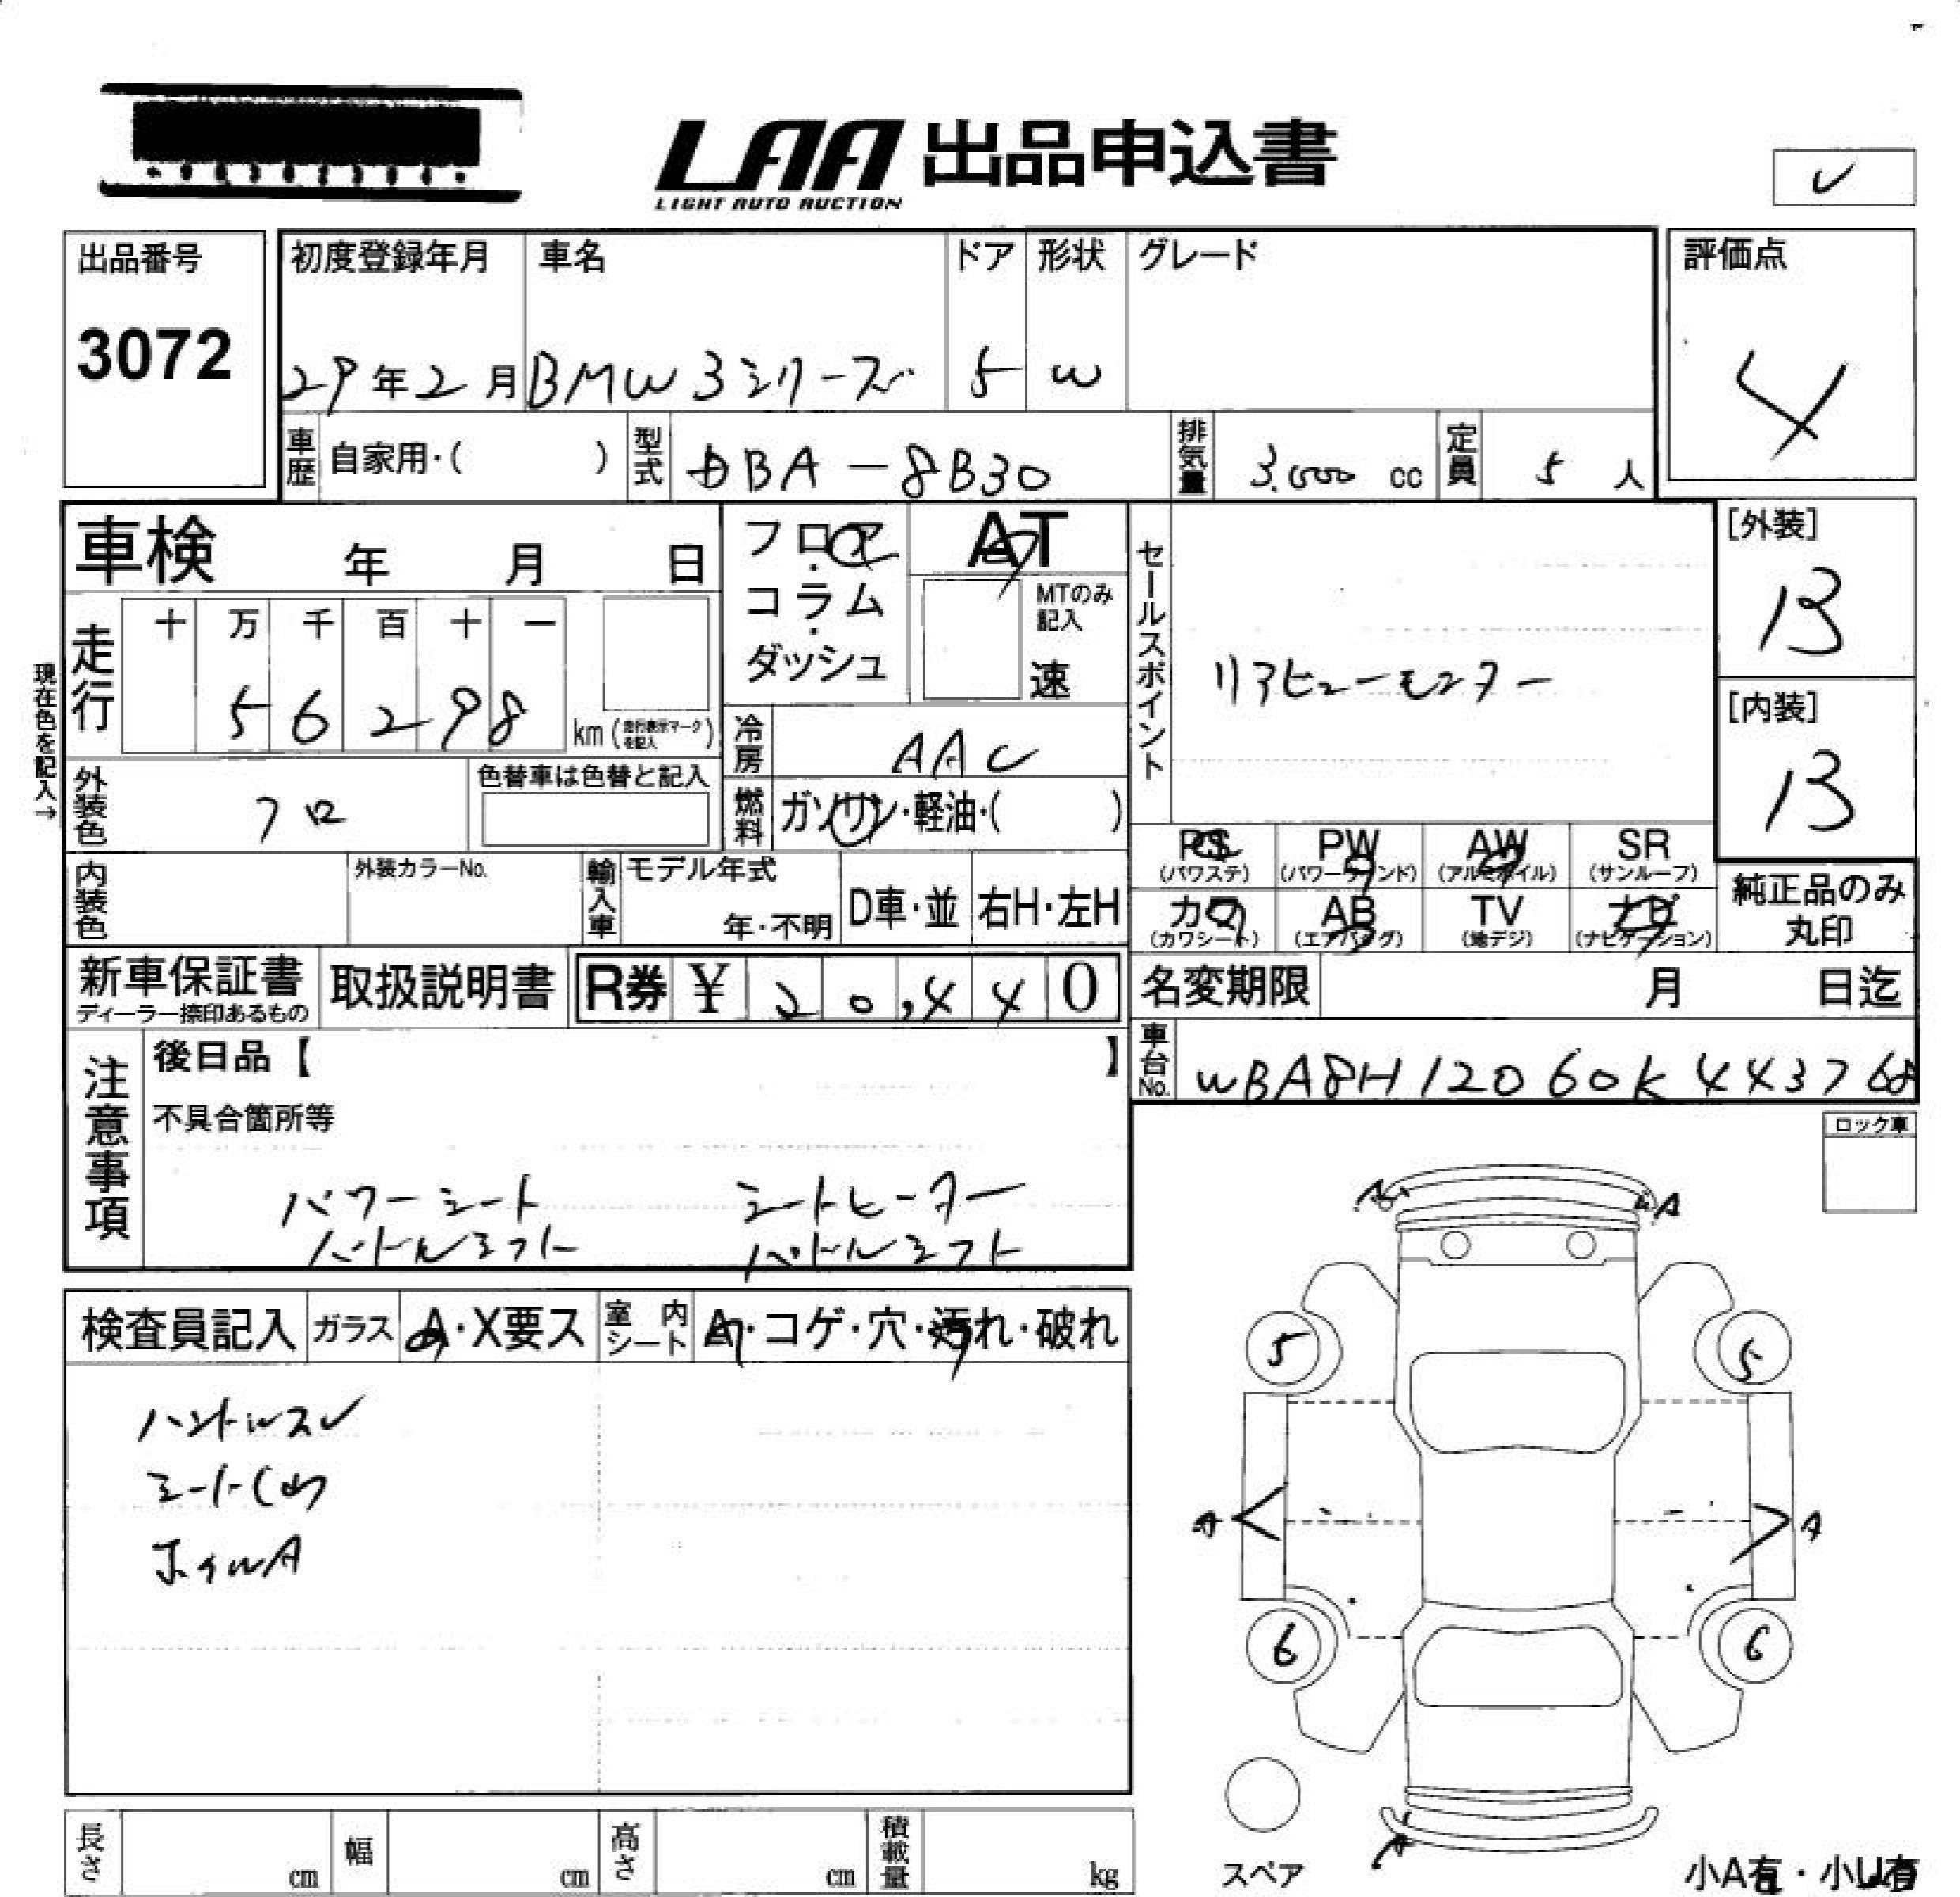 LAA 出品申込書
LIGHT AUTO AUCTION
レ
出品番号 初度登録年月 車名 ドア 形状 グレード 評価点
3072 29年2月 BMW 3シリーズ 5 W 4
車歴 自家用・( ) 型式 DBA-8B30 排気量 3,000 cc 定員 5 人
車検 年 月 日
フロア・コラム・ダッシュ
AT
MTのみ記入
速
セールスポイント
リアビューモニター
[外装]
B
[内装]
B
現在色を記入→
走行 十 万 千 百 十 一
5 6 2 9 8 km (走行表示マークを記入)
冷房 AAC
外装色 クロ 色替車は色替と記入
燃料 ガソリン・軽油・( )
PS PW AW SR
(パワステ) (パワーウィンド) (アルミホイル) (サンルーフ)
カワ AB TV ナビ
(カワシート) (エアバッグ) (地デジ) (ナビゲーション)
純正品のみ
丸印
内装色 外装カラーNo. 輸入車 モデル年式
年・不明 D車・並 右H・左H
新車保証書 取扱説明書 R券 ¥ 20,440
ディーラー捺印あるもの
名変期限 月 日迄
車台No. WBA8H12060K443768
注意事項
後日品【 】
不具合箇所等
パワーシート シートヒーター
パドルシフト パドルシフト
ロック車
検査員記入 ガラス A・X要ス 室内シート A・コゲ・穴・汚れ・破れ
ハンドルスレ
ホイルA
A A
5 5
A A
6 6
A
スペア
小A有・小U有
長さ cm 幅 cm 高さ cm 積載量 kg